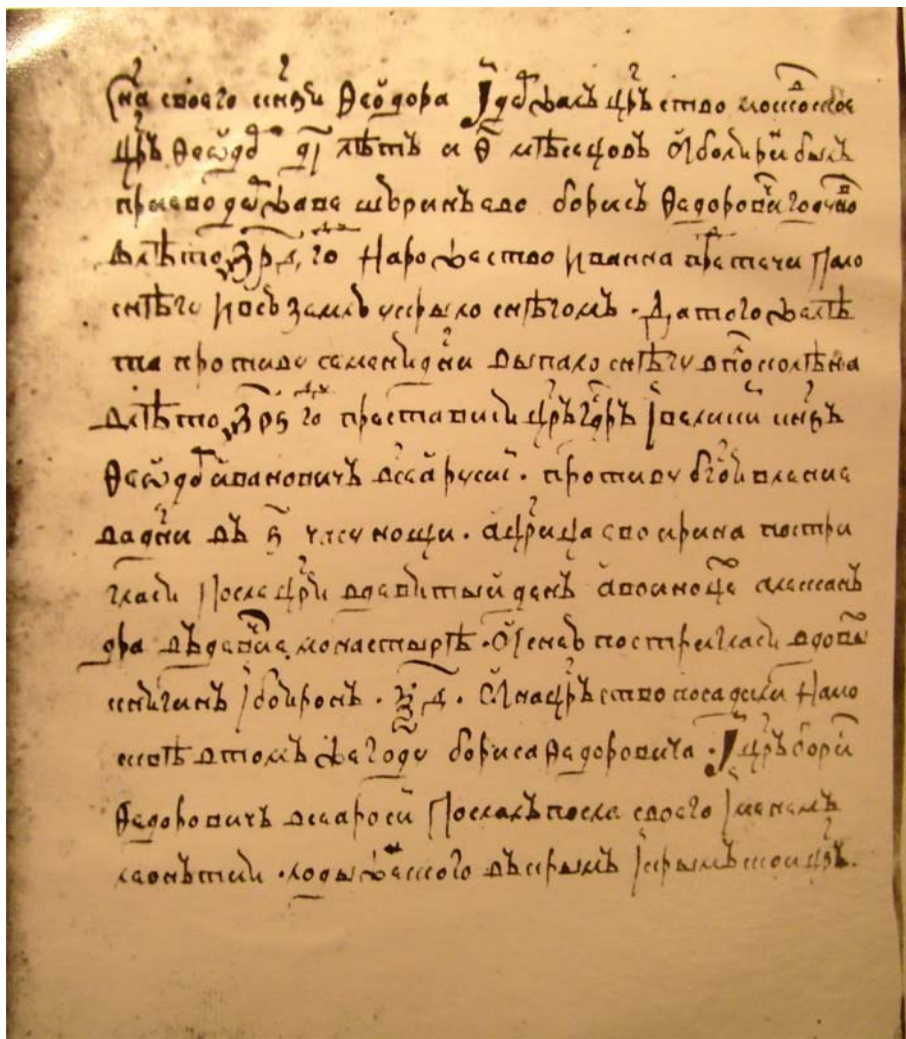 сна своего кнѧзѧ Ѳеѡдора И держалъ црьство московское
црь Ѳеѡдоръ дı лѣтъ и ѳ мѣсецовъ А болѧринъ былъ
при господарьжаве шюринъ ево борисъ Ѳедоровичъ годунов
в лѣто ҂зрд го На рожество Иванна прⷣтечи Пало
снѣгу И всю землю укрыло снѣгомъ · Да того же лѣ
та противу семеня дни выпало снѣгу в пѡколѣна
в лѣто ҂зрѕ го преставися црь гдрь И великии кнзь
Ѳеѡдоръ ивановичъ всеа русии · противу бгоявление
ва дни въ ѕ часу нощи · а црица ево ирина постри
глася После цря в девятый день а во иноцех алексань
дра въ девиче монастырѣ · А с нею постреглася вдовы
княгинь И бояронь · л҃д · А на црьство посадили На мо
сквѣ в томъ же году бориса Ѳедоровича · И црь бори
Ѳедоровичъ всеа росии Послалъ посла своего Именемъ
леонътия · лодыженского въ крымъ Къ крымъскому црю.